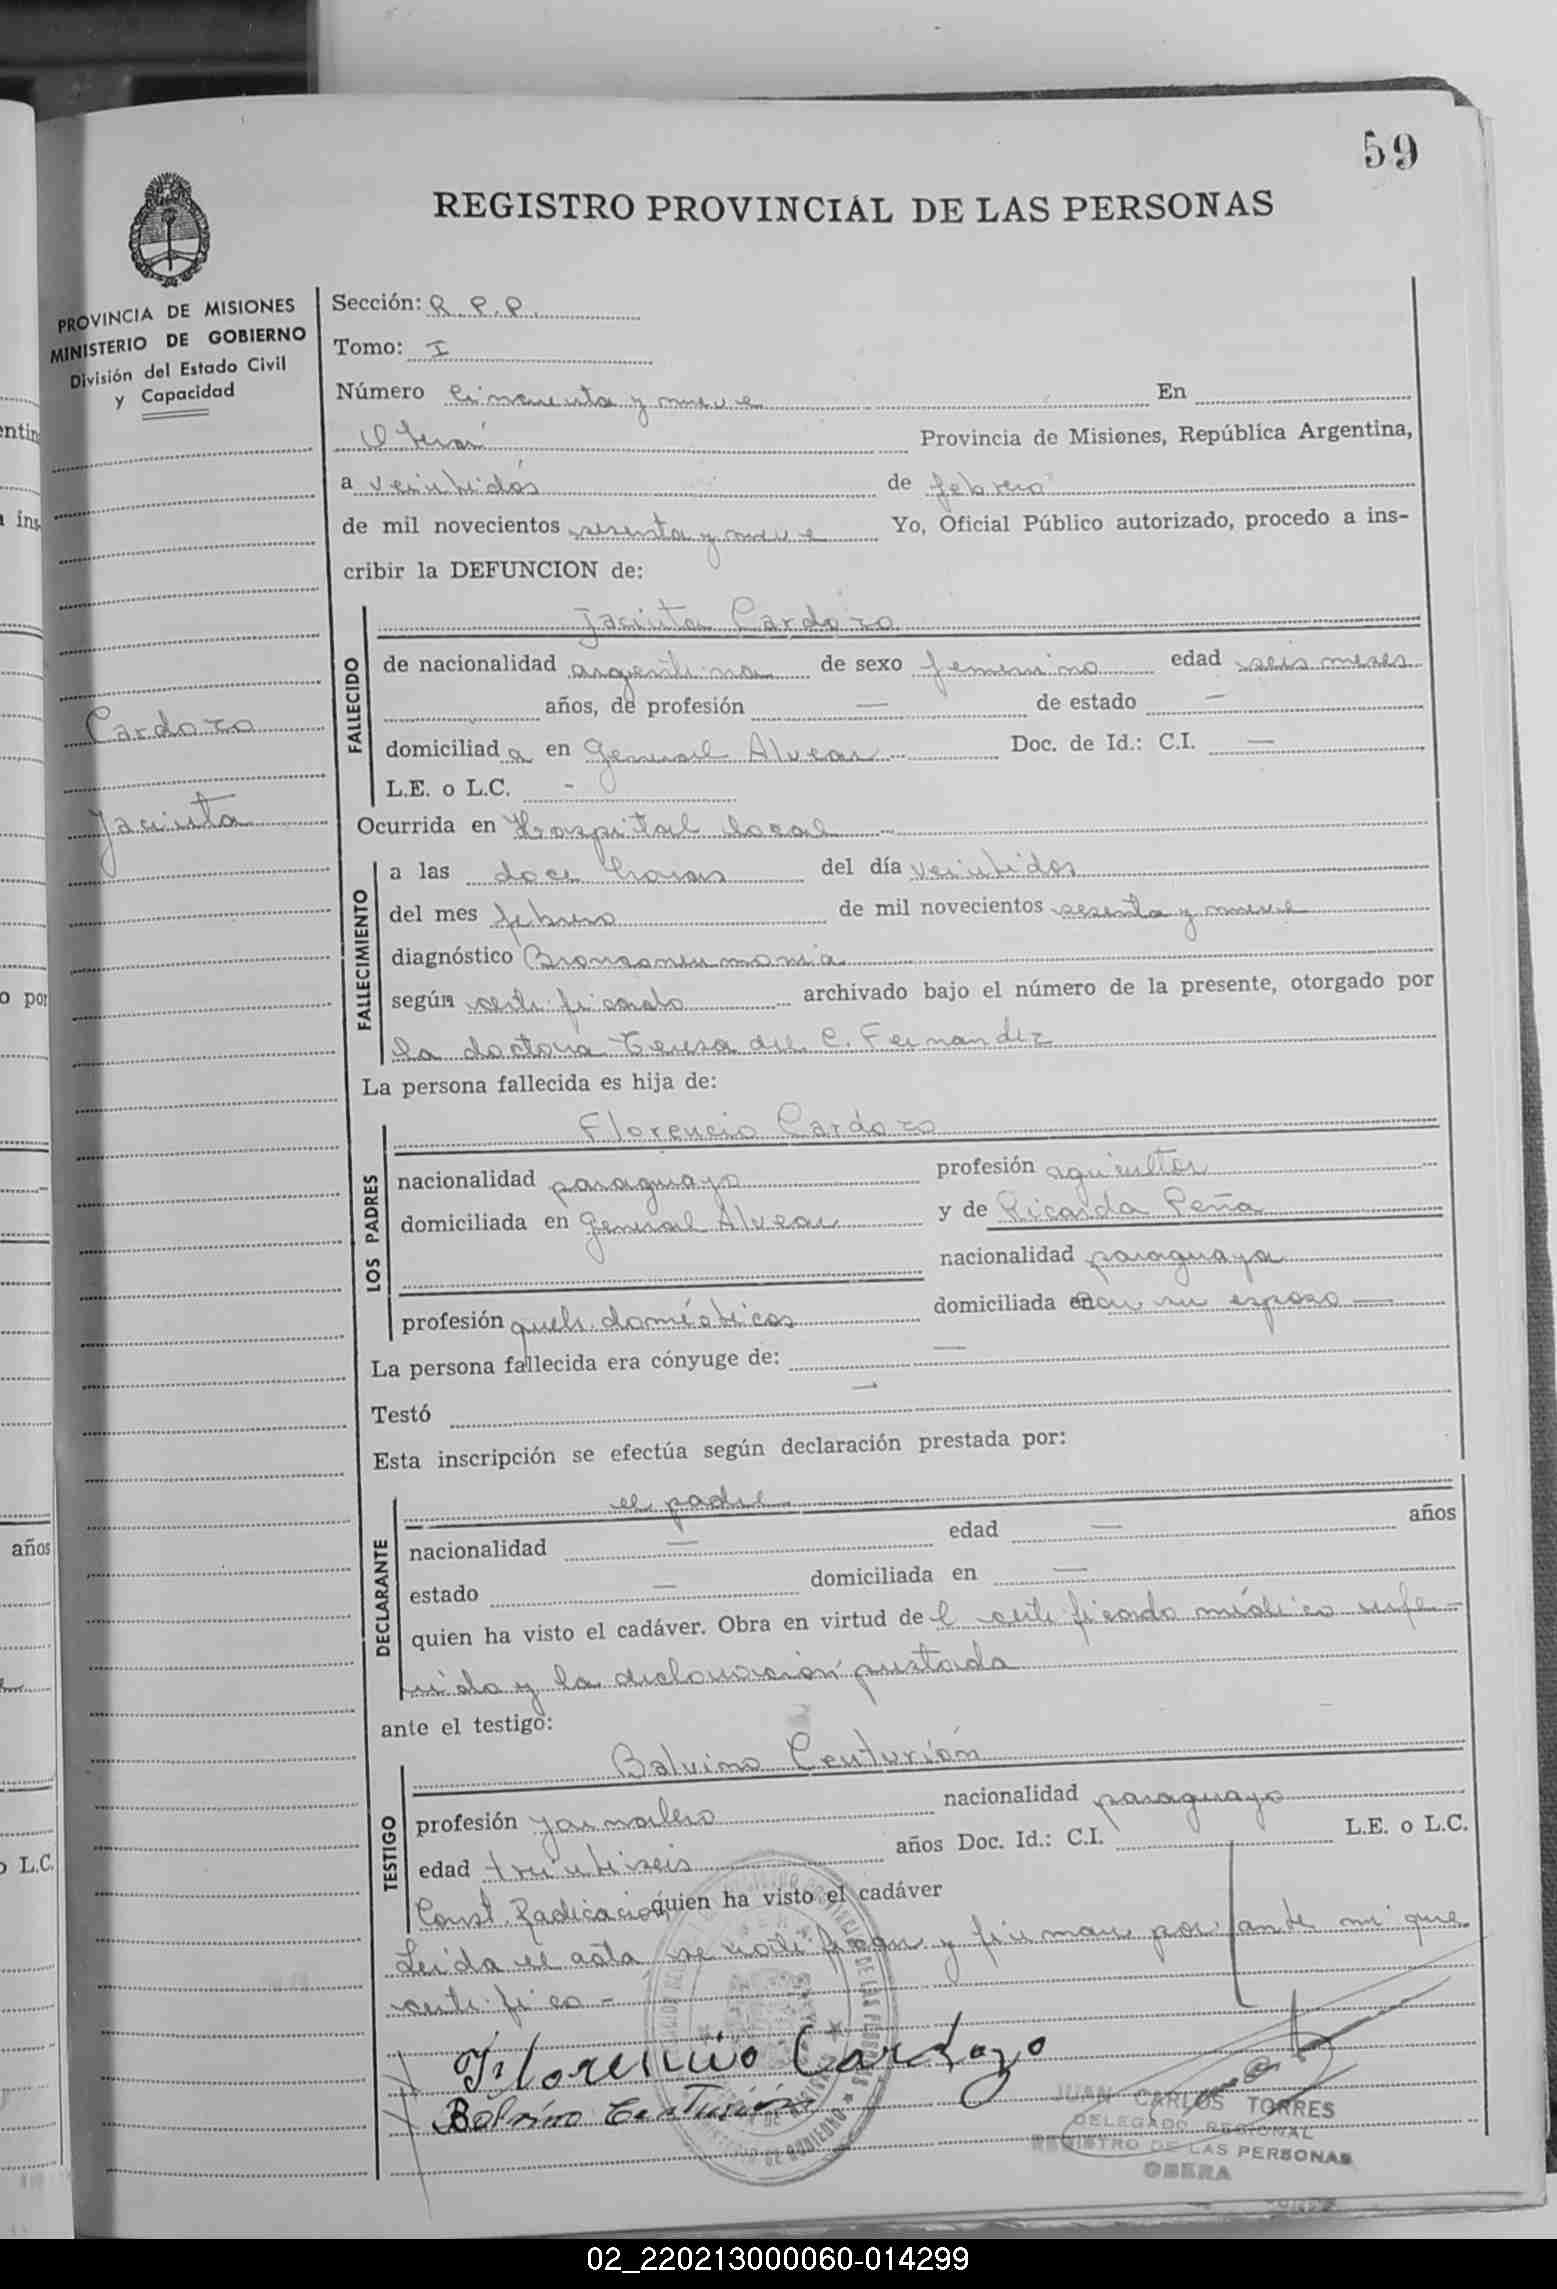 59
REGISTRO PROVINCIAL DE LAS PERSONAS
PROVINCIA DE MISIONES
MINISTERIO DE GOBIERNO
División del Estado Civil
y Capacidad
Cardozo
Jacinta
Sección: R.P.P.
Tomo: I
Número Cincuenta y nueve En
Oberá Provincia de Misiones, República Argentina,
a veintidós de febrero
de mil novecientos sesenta y nueve Yo, Oficial Público autorizado, procedo a ins-
cribir la DEFUNCION de:
FALLECIDO
Jacinta Cardozo
de nacionalidad argentina de sexo femenino edad seis meses
años, de profesión — de estado —
domiciliad a en General Alvear Doc. de Id.: C.I. —
L.E. o L.C. -
Ocurrida en Hospital local
FALLECIMIENTO
a las doce horas del día veintidos
del mes febrero de mil novecientos sesenta y nueve
diagnóstico Bronconeumonia
según certificado archivado bajo el número de la presente, otorgado por
la doctora Teresa del C. Fernandez
La persona fallecida es hija de:
LOS PADRES
Florencio Cardozo
nacionalidad paraguayo profesión agricultor
domiciliada en General Alvear y de Ricarda Peña
nacionalidad paraguaya
profesión queh. domésticos domiciliada en con su esposo —
La persona fallecida era cónyuge de: —
Testó —
Esta inscripción se efectúa según declaración prestada por:
DECLARANTE
el padre
nacionalidad — edad — años
estado — domiciliada en —
quien ha visto el cadáver. Obra en virtud de l certificado médico refe-
rido y la declaración prestada
ante el testigo:
TESTIGO
Balvino Centurión
profesión jornalero nacionalidad paraguayo
edad treintiseis años Doc. Id.: C.I. L.E. o L.C.
Const. Radicación quien ha visto el cadáver
Leida el acta se ratifican y firman por ante mi que
certifico -
Florencio Cardozo
Balvino Centurión
JUAN CARLOS TORRES
DELEGADO REGIONAL
REGISTRO DE LAS PERSONAS
OBERA
02_220213000060-014299